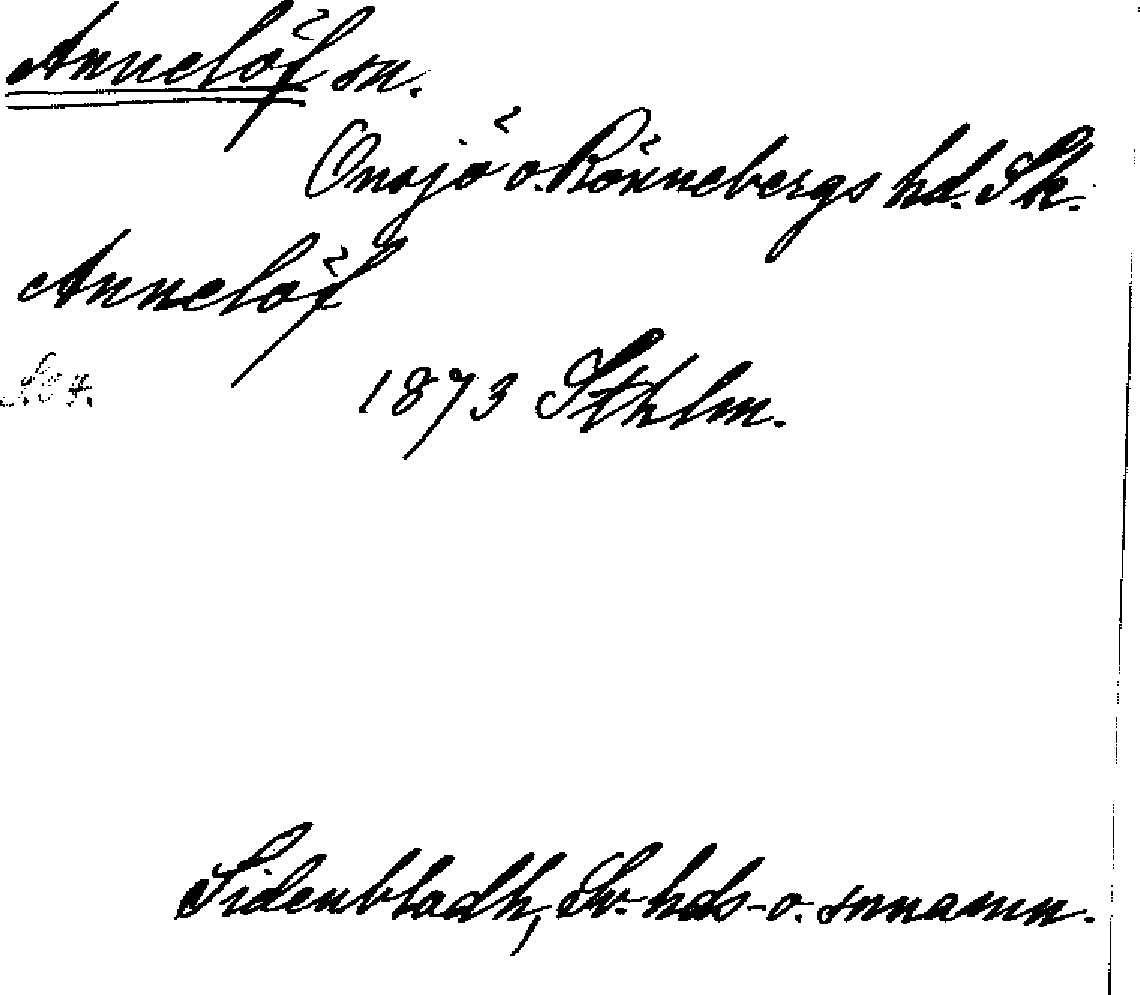 Annelöf sn.
Onsjö o. Rönnebergs hd. Sk.
Annelöf
1873 Sthlm.
Sidenbladh, Sv. hds- o. snnamn.